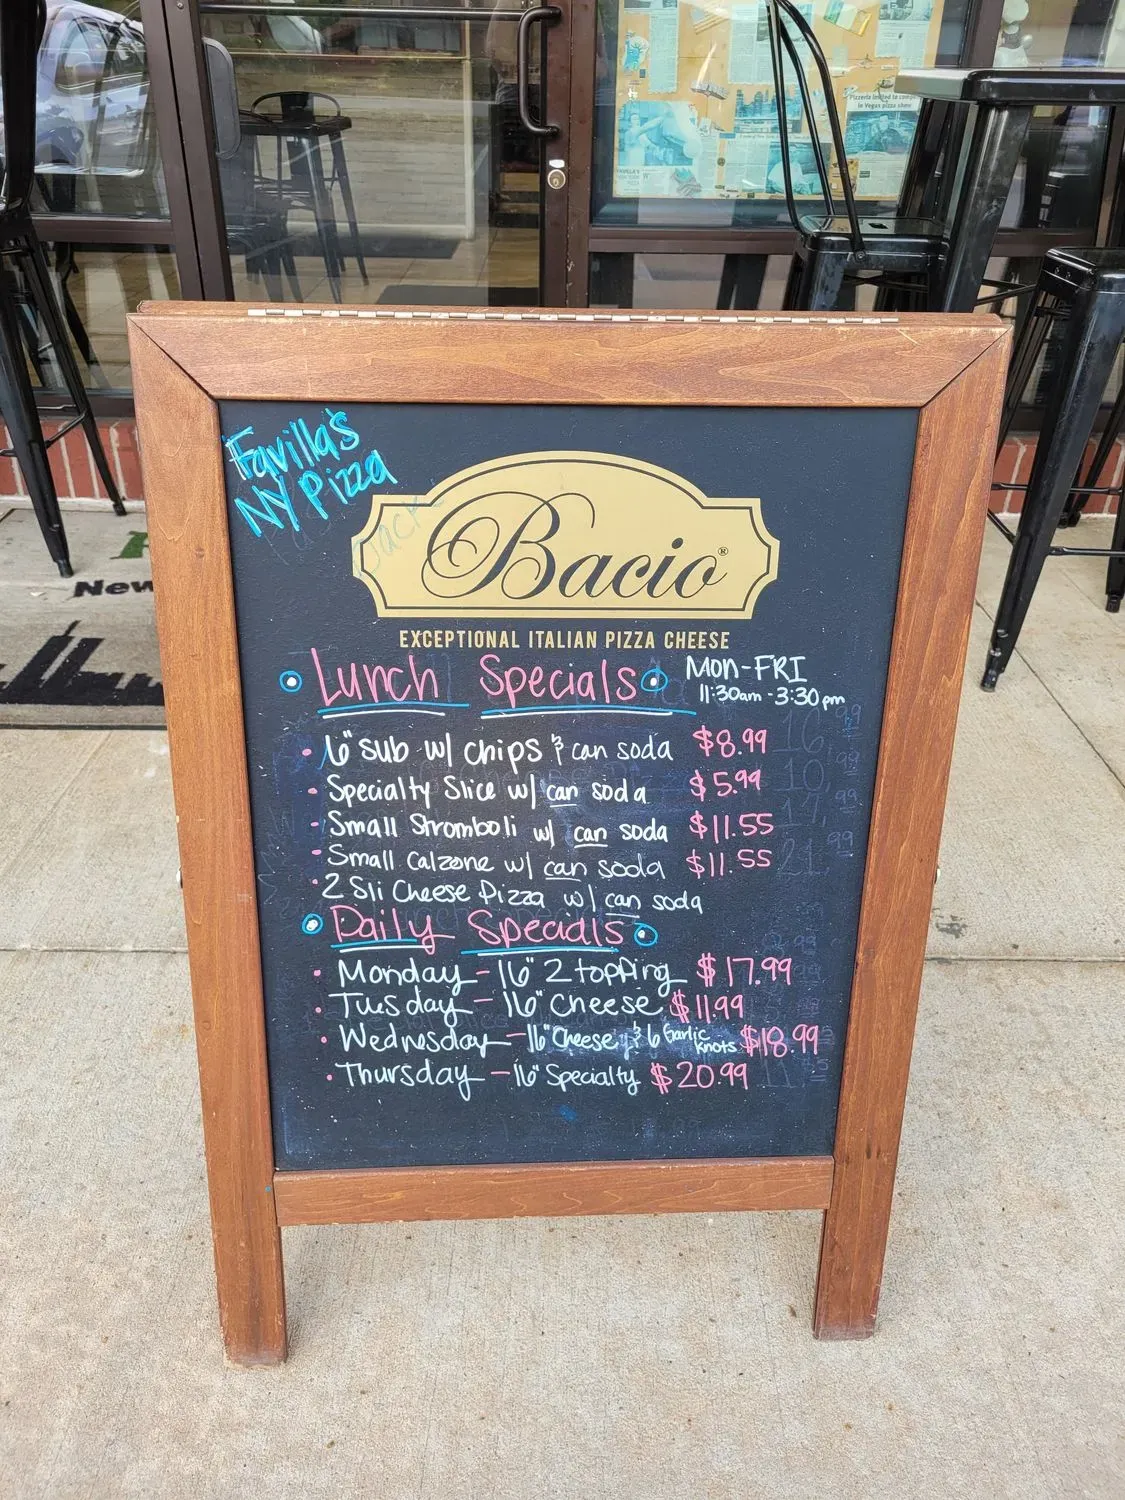 Pizzeria invited to compete
in Vegas pizza show
Favilla's
NY Pizza
Bacio®
EXCEPTIONAL ITALIAN PIZZA CHEESE
Lunch Specials MON-FRI
11:30am - 3:30pm
• 6" sub w/ chips & can soda $8.99
• Specialty Slice w/ can soda $5.99
• Small Stromboli w/ can soda $11.55
• Small Calzone w/ can soda $11.55
• 2 Sli Cheese Pizza w/ can soda
Daily Specials
• Monday - 16" 2 topping $17.99
• Tuesday - 16" Cheese $11.99
• Wednesday - 16" Cheese & 6 Garlic Knots $18.99
• Thursday - 16" Specialty $20.99
New